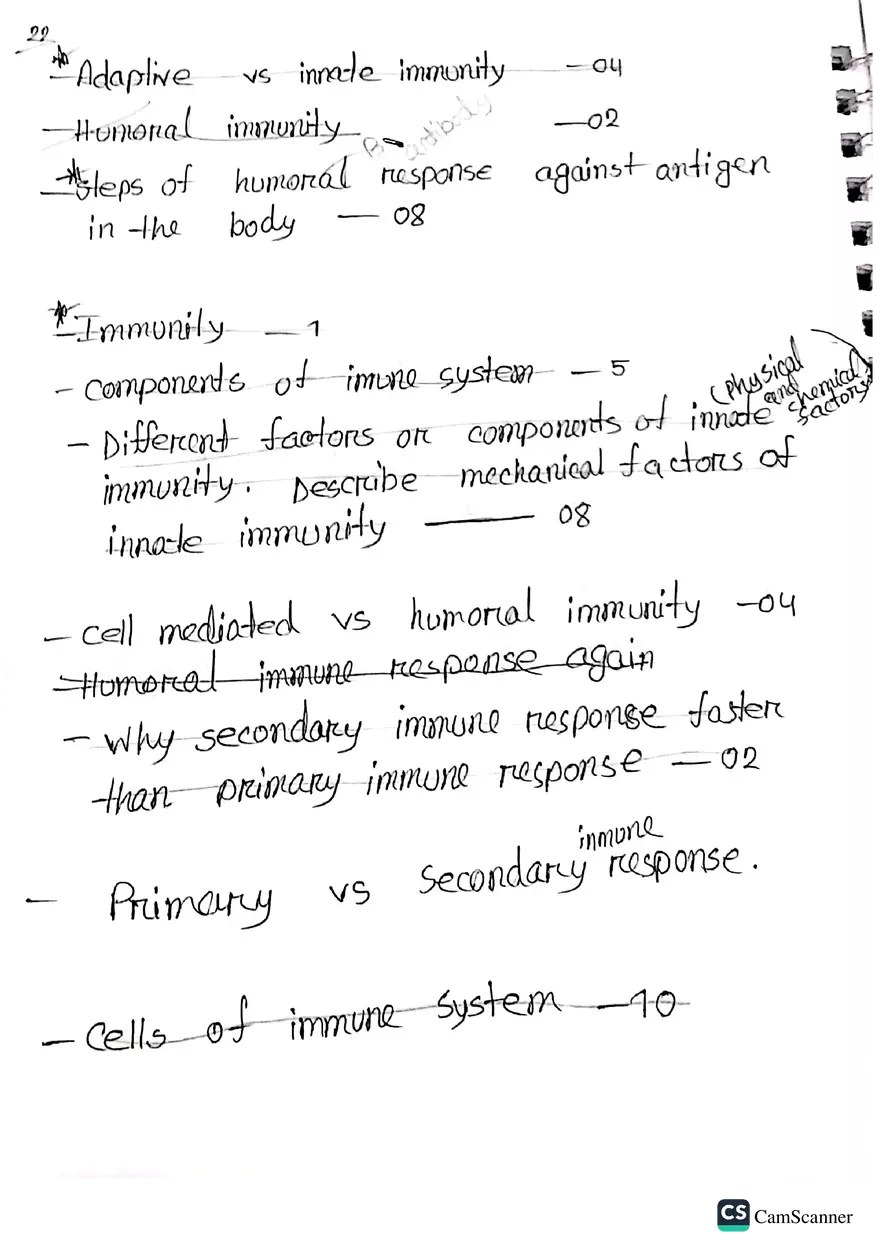 22
* Adaptive vs innate immunity - 04
- Humoral immunity - 02
B - antibody
* Steps of humoral response against antigen
in the body - 08
* Immunity - 1
- Components of imune system - 5
(Physical and chemical factors)
- Different factors or components of innate
immunity. Describe mechanical factors of
innate immunity - 08
- Cell mediated vs humoral immunity - 04
- Humoral immune response again
- Why secondary immune response faster
than primary immune response - 02
immune
- Primary vs Secondary response.
- Cells of immune system - 10
CS CamScanner